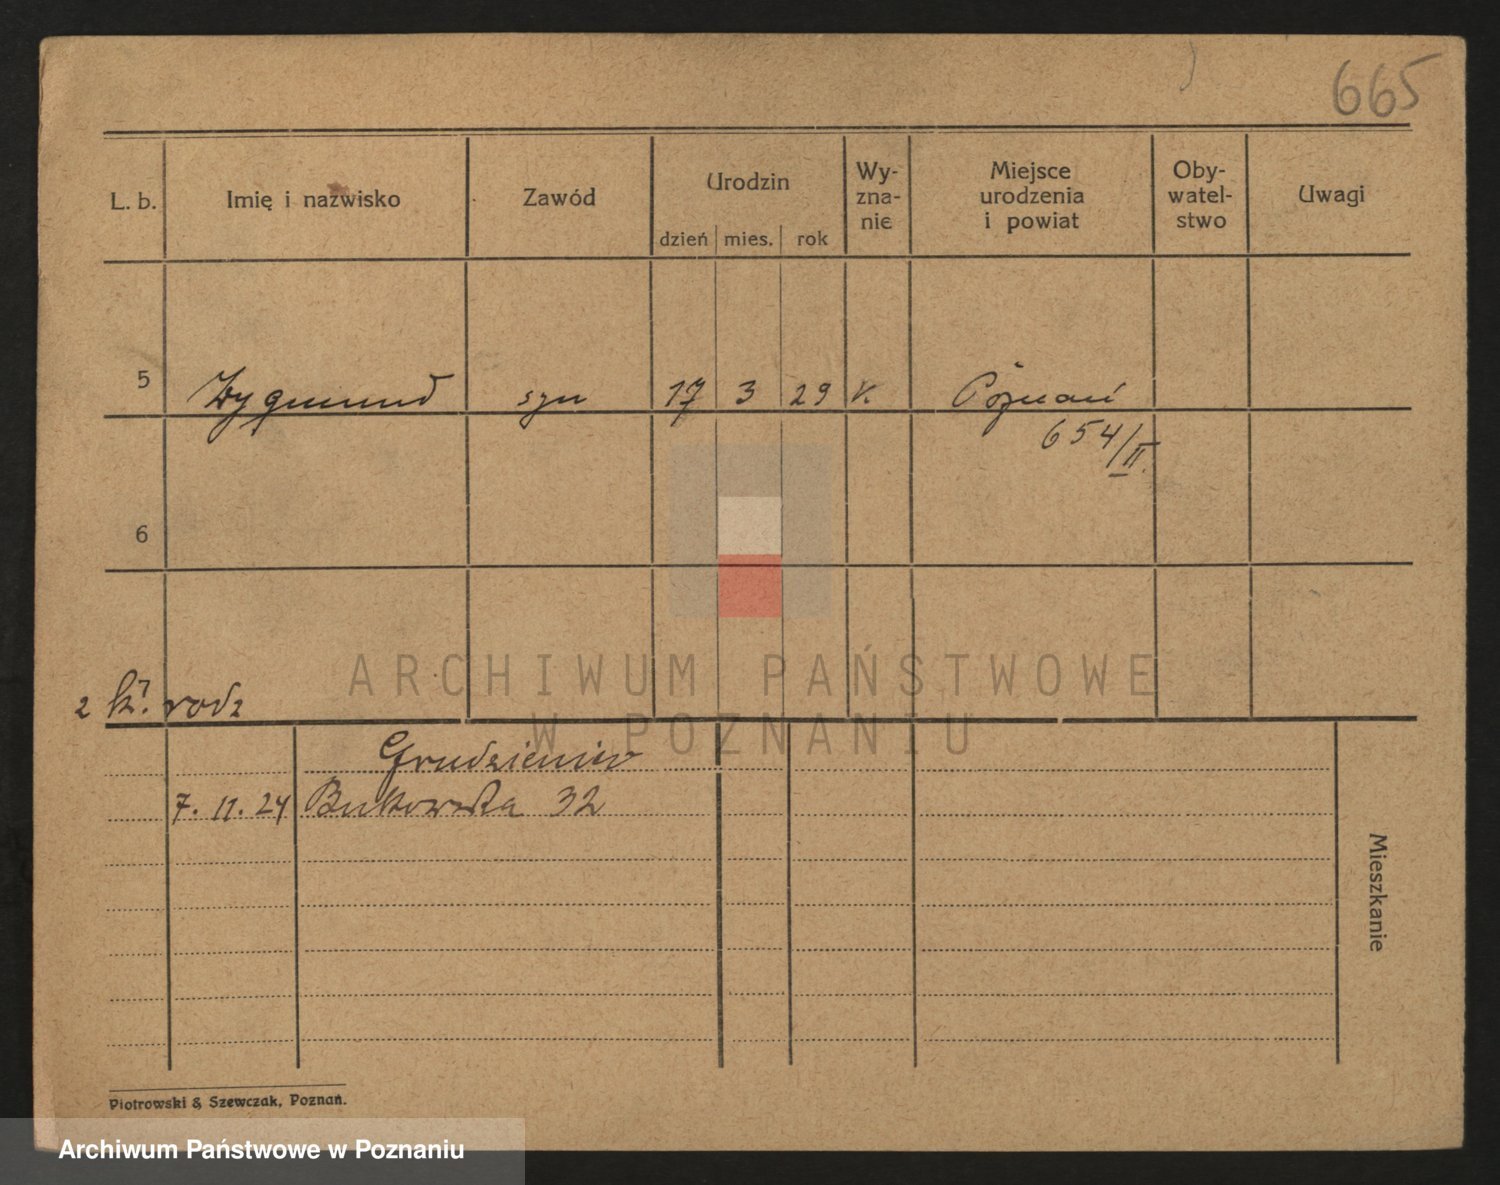 665
L. b. Imię i nazwisko Zawód Urodzin dzień mies. rok Wy-znanie Miejsce urodzenia i powiat Oby-watel-stwo Uwagi
5 Zygmund syn 17 3 29 k. Poznań
654/II.
6
2 k. rodz
7. 11. 24 Bukowska 32
Mieszkanie
Piotrowski & Szewczak, Poznań.
ARCHIWUM PAŃSTWOWE
W POZNANIU
Archiwum Państwowe w Poznaniu